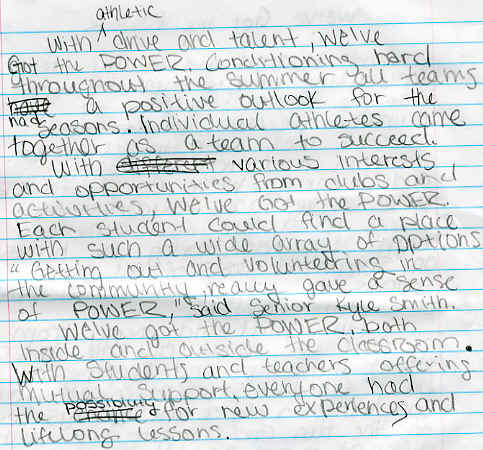 athletic
With ^ drive and talent, We've
Got the POWER. Conditioning hard
throughout the summer all teams
had a positive outlook for the
seasons. Individual athletes came
together as a team to succeed.
With different various interests
and opportunities from clubs and
activities, We've Got the POWER.
Each student could find a place
with such a wide array of options
"Getting out and volunteering in
the community really gave a sense
of POWER," said senior Kyle Smith.
We've got the POWER, both
inside and outside the classroom.
With students and teachers offering
mutual support, everyone had
possibility
the chance for new experiences and
lifelong lessons.